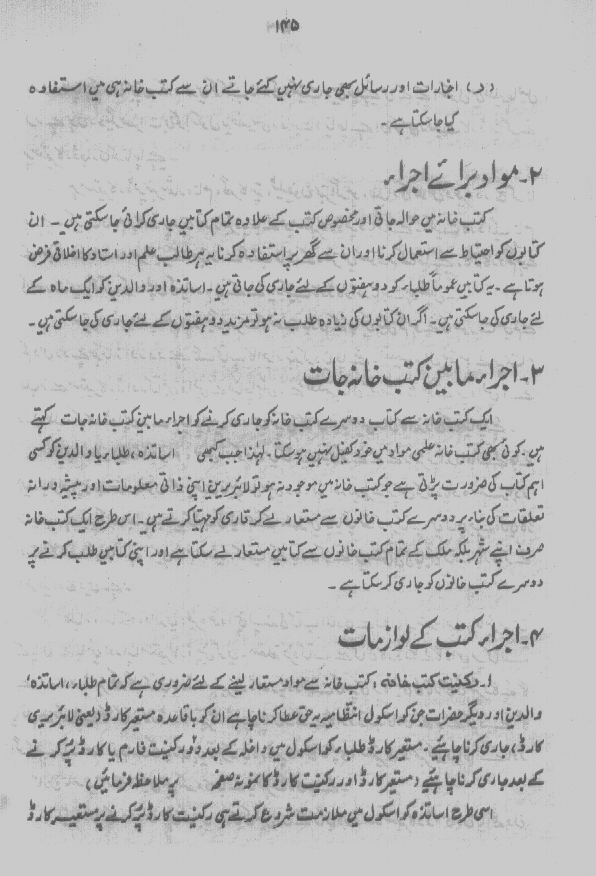 ۱۴۵
(د) اخبارات اور رسائل بھی جاری نہیں کئے جاتے ان سے کتب خانہ ہی میں استفادہ
کیا جاسکتا ہے۔
۲۔ مواد برائے اجراء
کتب خانہ میں حوالہ جاتی اور مخصوص کتب کے علاوہ تمام کتابیں جاری کرائی جاسکتی ہیں۔ ان
کتابوں کو احتیاط سے استعمال کرنا اور ان سے گھر پر استفادہ کرنا یہ ہر طالب علم اور استاد کا اخلاقی فرض
ہوتا ہے۔ یہ کتابیں عموماً طلباء کو دو ہفتوں کے لئے جاری کی جاتی ہیں۔ اساتذہ اور والدین کو ایک ماہ کے
لئے جاری کی جاسکتی ہیں۔ اگر ان کتابوں کی زیادہ طلب نہ ہو تو مزید دو ہفتوں کے لئے جاری کی جاسکتی ہیں۔
۳۔ اجراء مابین کتب خانہ جات
ایک کتب خانہ سے کتاب دوسرے کتب خانہ کو جاری کرنے کو اجراء مابین کتب خانہ جات کہتے
ہیں۔ کوئی بھی کتب خانہ علمی مواد میں خود کفیل نہیں ہوسکتا۔ لہٰذا جب کبھی اساتذہ، طلباء یا والدین کو کسی
اہم کتاب کی ضرورت پڑتی ہے جو کتب خانہ میں موجود نہ ہو تو لائبریرین اپنی ذاتی معلومات اور پیشہ ورانہ
تعلقات کی بناء پر دوسرے کتب خانوں سے مستعار لے کر قاری کو مہیا کرتے ہیں۔ اس طرح ایک کتب خانہ
صرف اپنے شہر بلکہ ملک کے تمام کتب خانوں سے کتابیں مستعار لے سکتا ہے اور اپنی کتابیں طلب کرنے پر
دوسرے کتب خانوں کو جاری کرسکتا ہے۔
۴۔ اجراء کتب کے لوازمات
۱۔ رکنیت کتب خانہ: کتب خانہ سے مواد مستعار لینے کے لئے ضروری ہے کہ تمام طلباء، اساتذہ،
والدین اور دیگر حضرات جن کو اسکول انتظامیہ یہ حق عطا کرنا چاہے ان کو باقاعدہ مستعیر کارڈ (یعنی لائبریری
کارڈ) جاری کرنا چاہئیے۔ مستعیر کارڈ طلباء کو اسکول میں داخلہ کے بعد وفوراً رکنیت فارم یا کارڈ پُر کرنے
کے بعد جاری کرنا چاہئیے (مستعیر کارڈ اور رکنیت کارڈ کا نمونہ صفحہ پر ملاحظہ فرمائیں)
اسی طرح اساتذہ کو اسکول میں ملازمت شروع کرتے ہی رکنیت کارڈ پُر کرنے پر مستعیر کارڈ